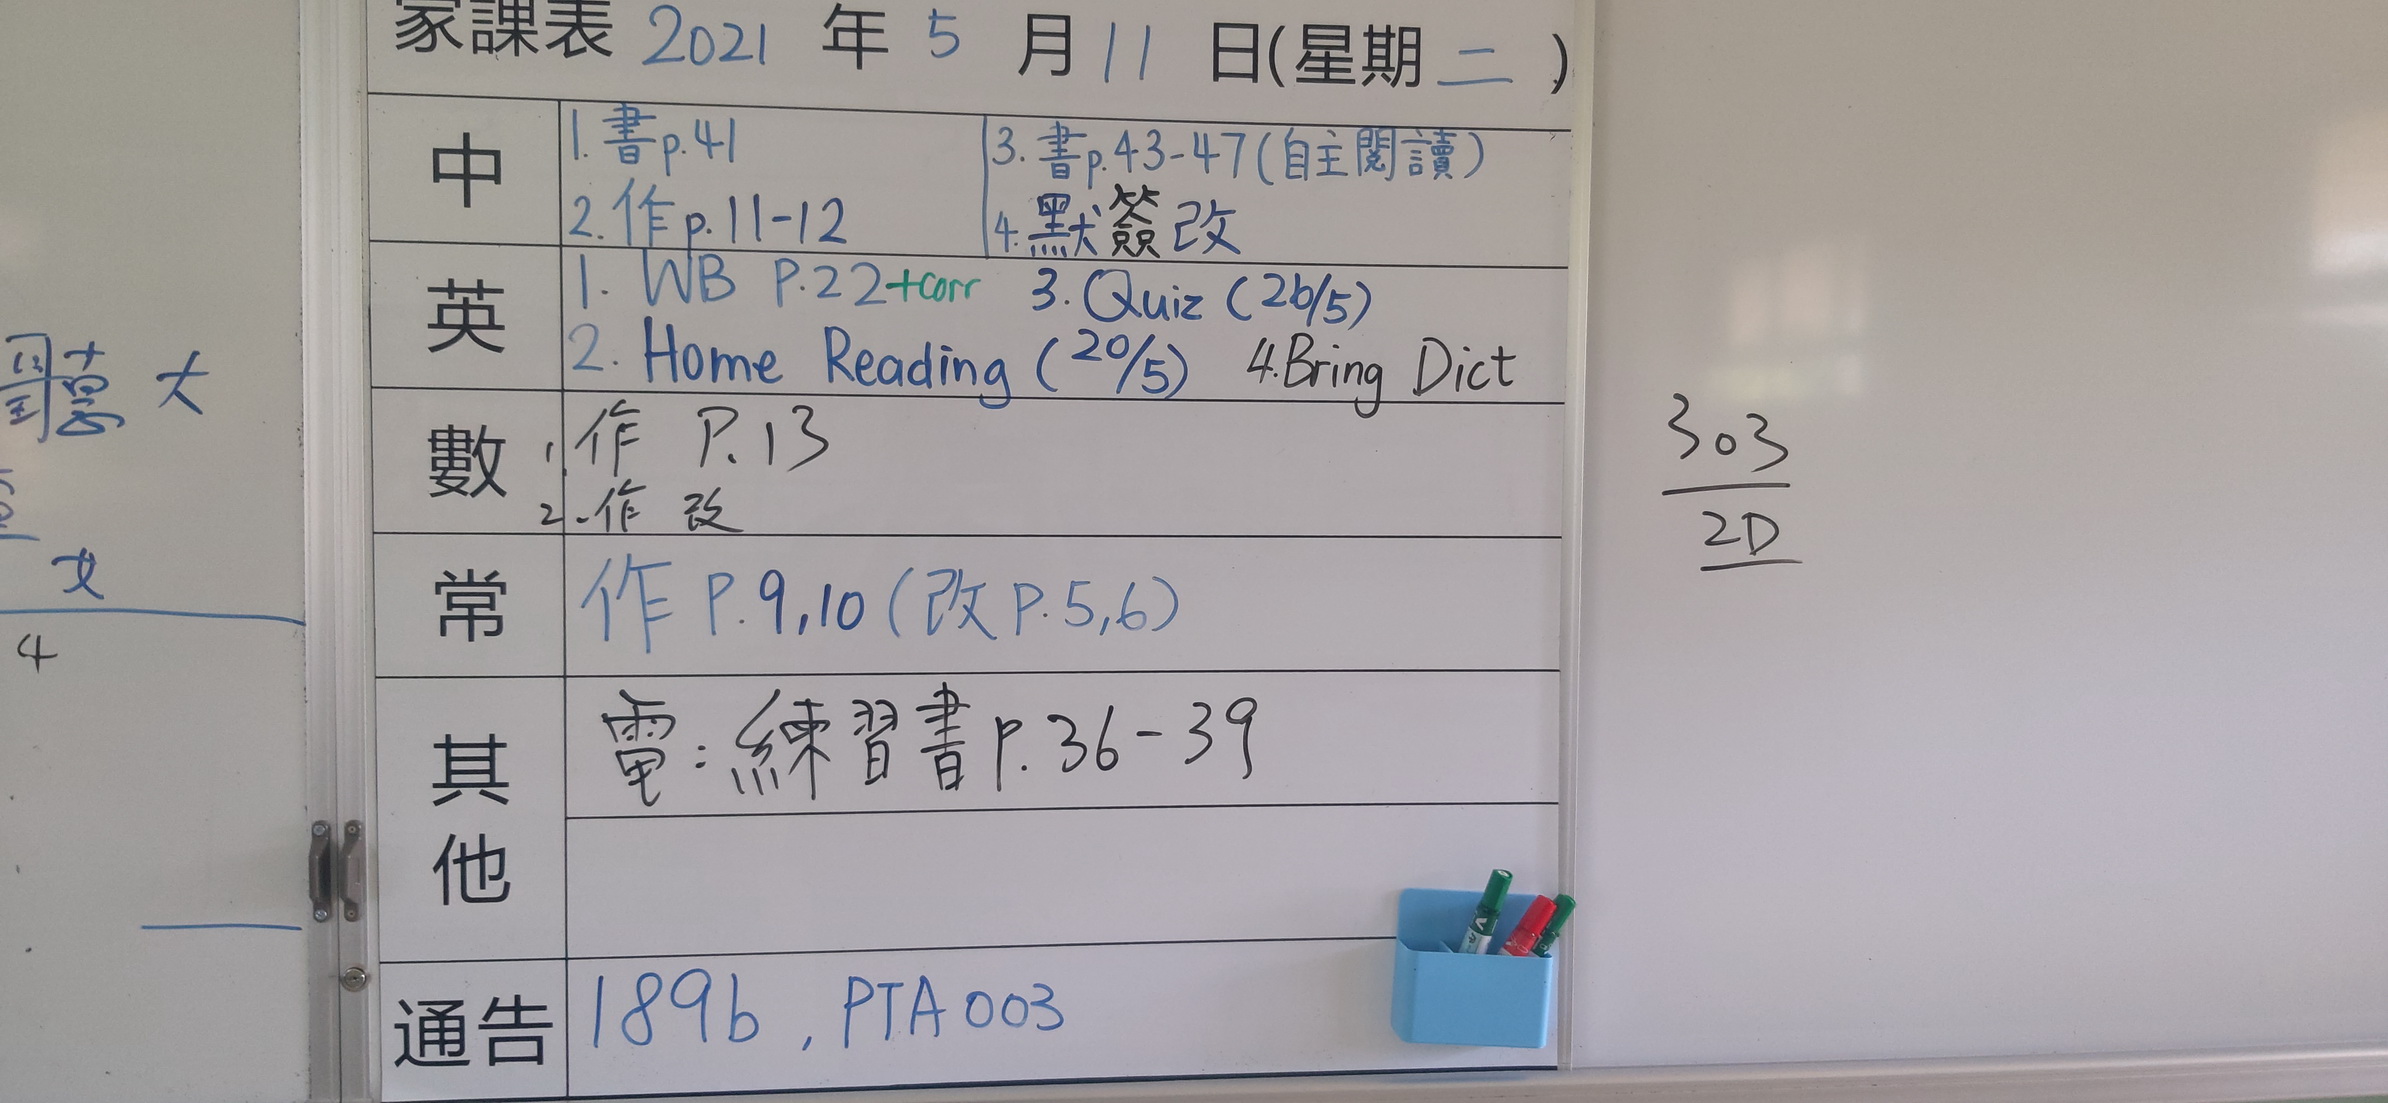 家課表 2021 年 5 月 11 日(星期 二 )
中
1. 書 p.41
2. 作 p.11-12
3. 書 p.43-47(自主閱讀)
4. 默簽改
英
1. WB P.22+corr 3. Quiz (26/5)
2. Home Reading (20/5) 4.Bring Dict
數
1. 作 P.13
2. 作 改
常
作 P.9,10 (改 P.5,6)
其他
電：練習書 p.36-39
通告
189b , PTA 003
303
2D
大
4